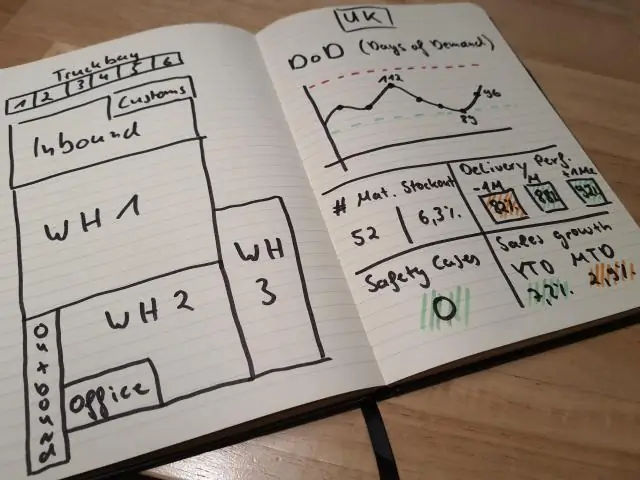 Truckbay
1 2 3 4 5 6
Customs
Inbound
WH 1
WH 2
WH
3
Outbound
Office
UK
DoD (Days of Demand)
112
96
89
# Mat. Stockout
52 6,3%
Delivery Perf.
-1M M +1M
82% 88% 92%
Safety Cases
0
Sales growth
YTD MTD
2,2%